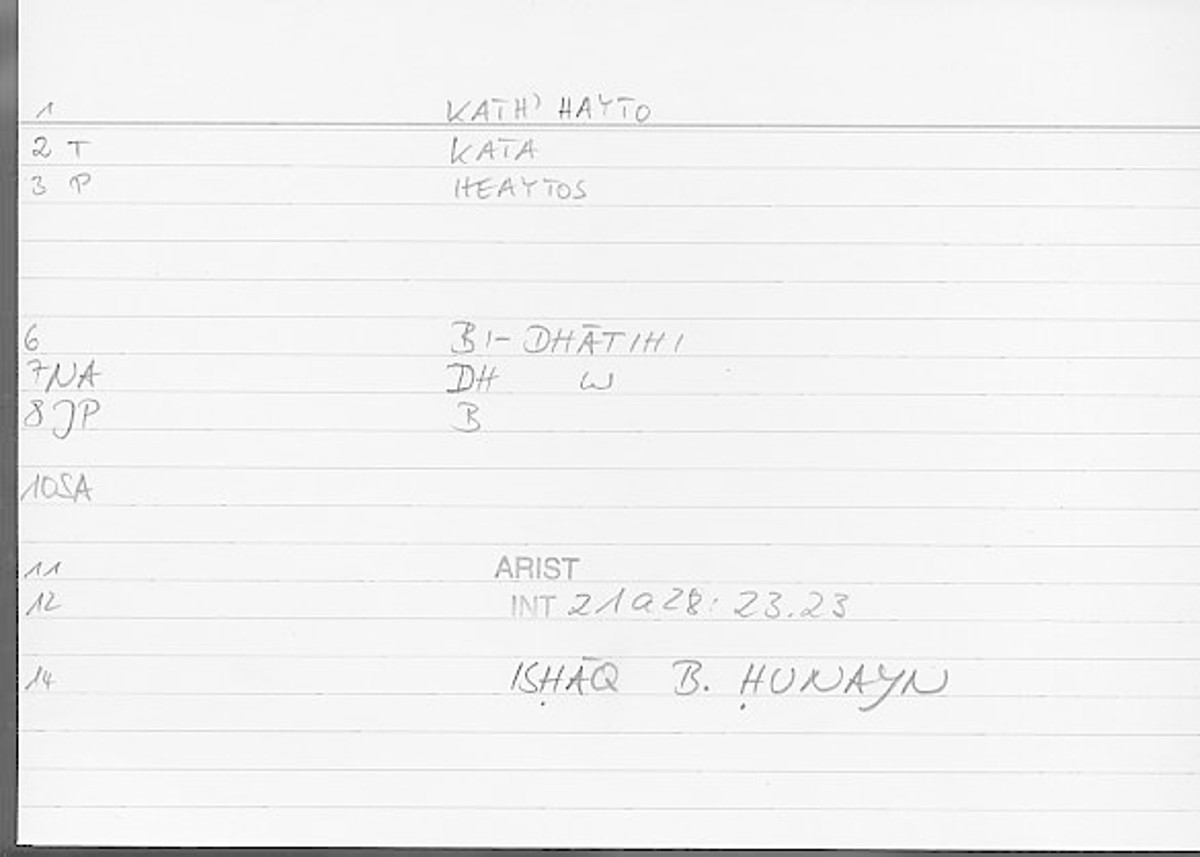 1 KATH' HAYTO
2 T KATA
3 P HEAYTOS
6 BI-DHĀTIHI
7NA DH W
8JP B
10SA
11 ARIST
12 INT 21a28: 23.23
14 ISḤĀQ B. ḤUNAYN